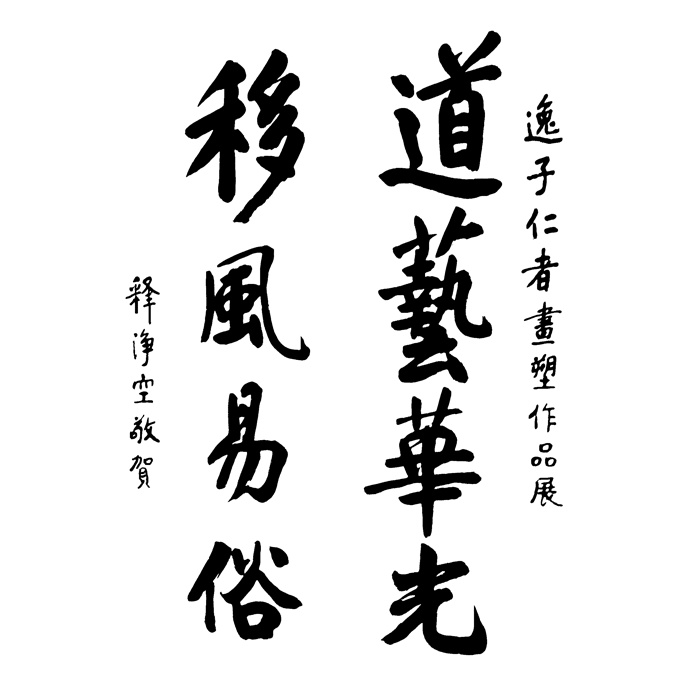 逸子仁者畫塑作品展
道藝華光
移風易俗
释淨空敬賀